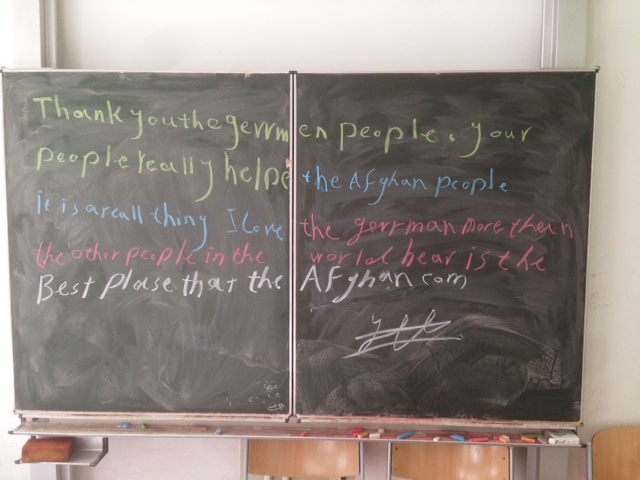 Thank you the gerrmen people. your
people really helpe the Afghan people
it is a reall thing I love the gerrman more then
the other people in the world hear is the
Best Plase that the Afghan com